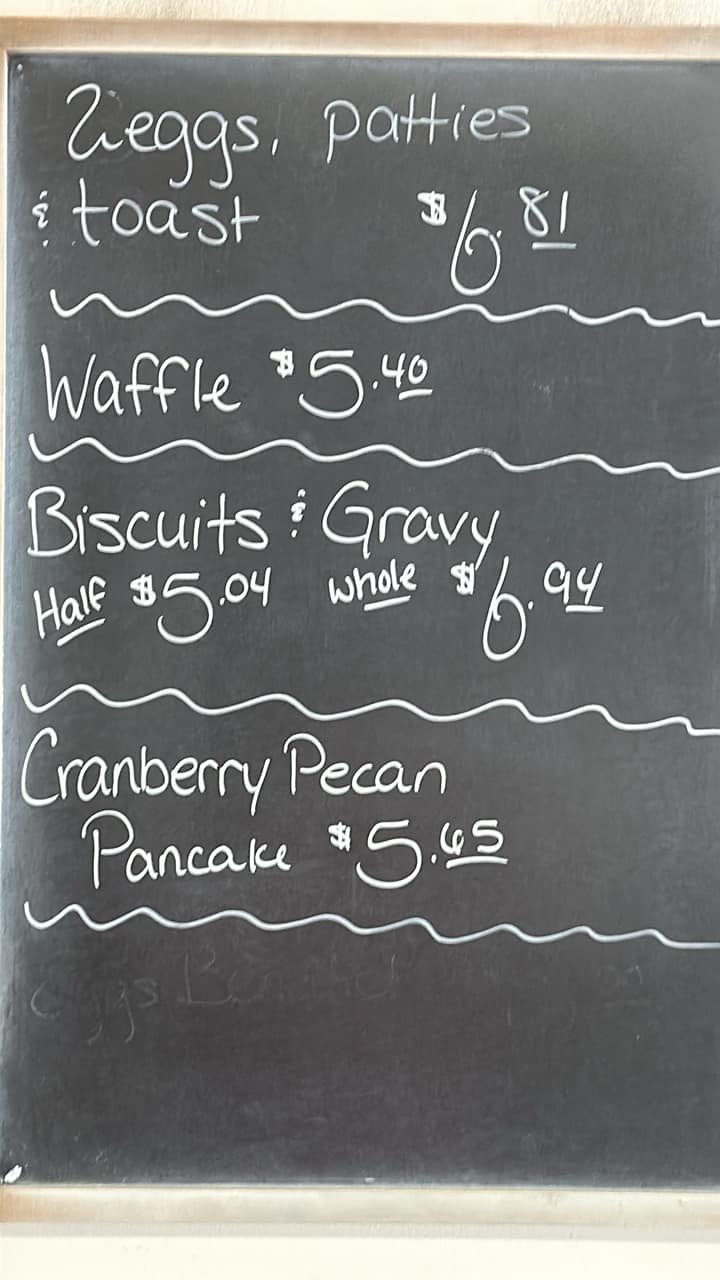 2 eggs, patties
& toast $6.81
Waffle $5.40
Biscuits & Gravy
Half $5.04 whole $6.94
Cranberry Pecan
Pancake $5.65